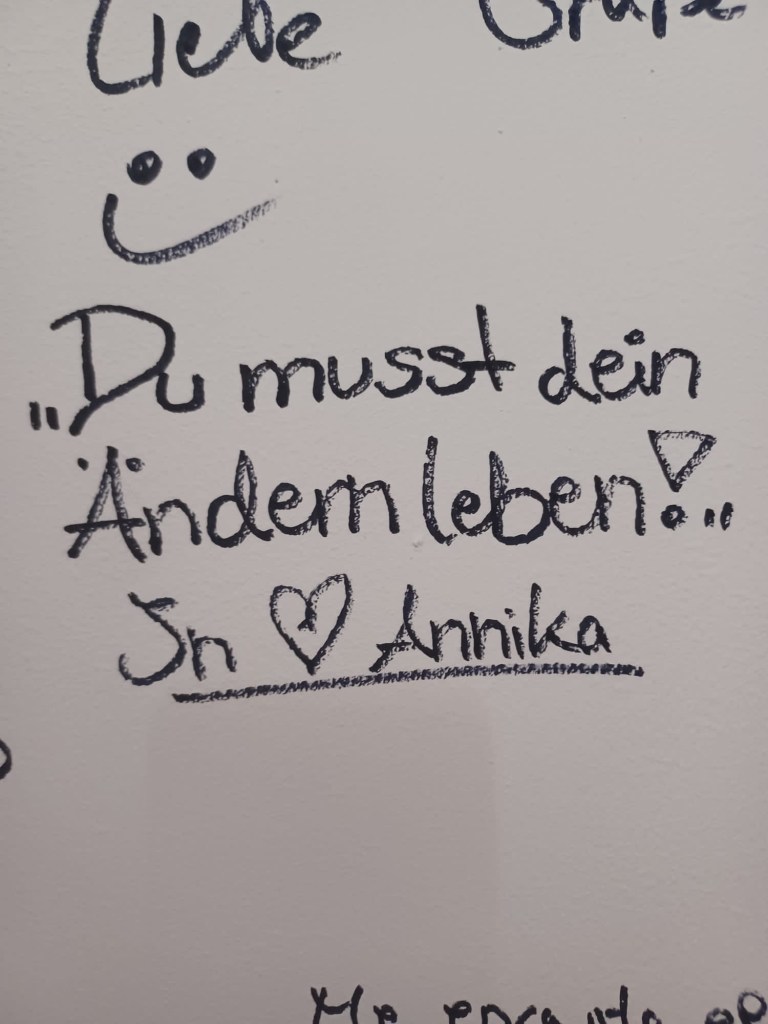 Liebe Grüße
„Du musst dein
Ändern leben!"
In ♡ Annika
Me encanta